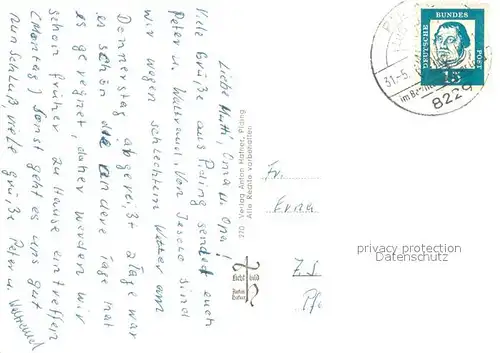 Liebe Mutti, Oma u. Opa!
Viele Grüße aus Piding sendet euch
Peter u. Waltraud. Von Jesolo sind
wir wegen schlechtem Wetter am
Donnerstag abgereißt 2 Tage war
es schön die andere Tage hat
es geregnet, daher werden wir
schon früher zu Hause eintreffen
(Montag) Sonst geht es uns gut
zum Schluß, viele Grüße Peter u. Waltraud
270 Verlag Anton Hafner, Piding
Alle Rechte vorbehalten
Licht bild
Anton Hafner
DEUTSCHE BUNDES POST
15
31.-5.
im Be
8229
Fr.
Erna
Z.S.
Pf
privacy protection
Datenschutz